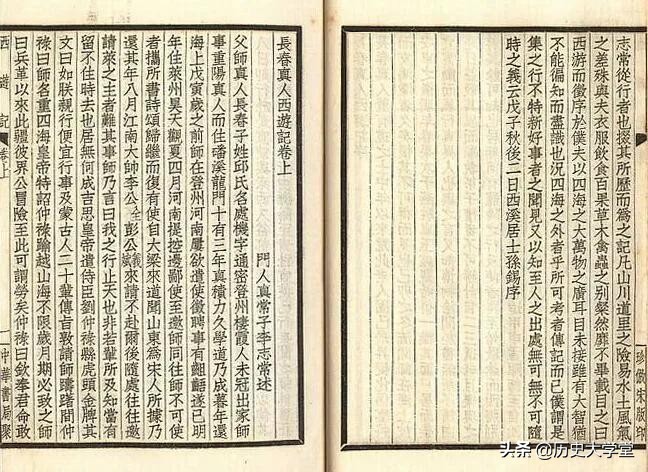 志常從行者也掇其所歷而爲之記凡山川道里之險易水土風氣
之差殊與夫衣服飲食百果草木禽蟲之別粲然靡不畢載目之曰
西游而徵序於僕夫以四海之大萬物之廣耳目未接雖有大智猶
不能徧知而盡識也況四海之外者乎所可考者傳記而已僕謂是
集之行不特新好事者之聞見又以知至人之出處無可無不可隨
時之義云戊子秋後二日西溪居士孫錫序
珍倣宋版印
長春真人西遊記卷上
門人真常子李志常述
父師真人長春子姓邱氏名處機字通密登州棲霞人未冠出家師
事重陽真人而住磻溪龍門十有三年真積力久學道乃成暮年還
海上戊寅歲之前師在登州河南屢欲遣使徵聘事有齟齬遂已明
年住萊州昊天觀夏四月河南提控邊鄙使至邀師同往師不可使
者攜所書詩頌歸繼而復有使自大梁來道聞山東爲宋人所據乃
還其年八月江南大帥李公全彭公義斌來請不赴爾後隨處往往邀
請萊之主者難其事師乃言曰我之行止天也非若輩所及知當有
留不住時去也居無何成吉思皇帝遣侍臣劉仲祿縣虎頭金牌其
文曰如朕親行便宜行事及蒙古人二十輩傳旨敦請師躊躇間仲
祿曰師名重四海皇帝特詔仲祿踰越山海不限歲月期必致之師
曰兵革以來此疆彼界公冒險至此可謂勞矣仲祿曰欽奉君命敢
西遊記
卷上
一
中華書局聚
头条 @历史大学堂